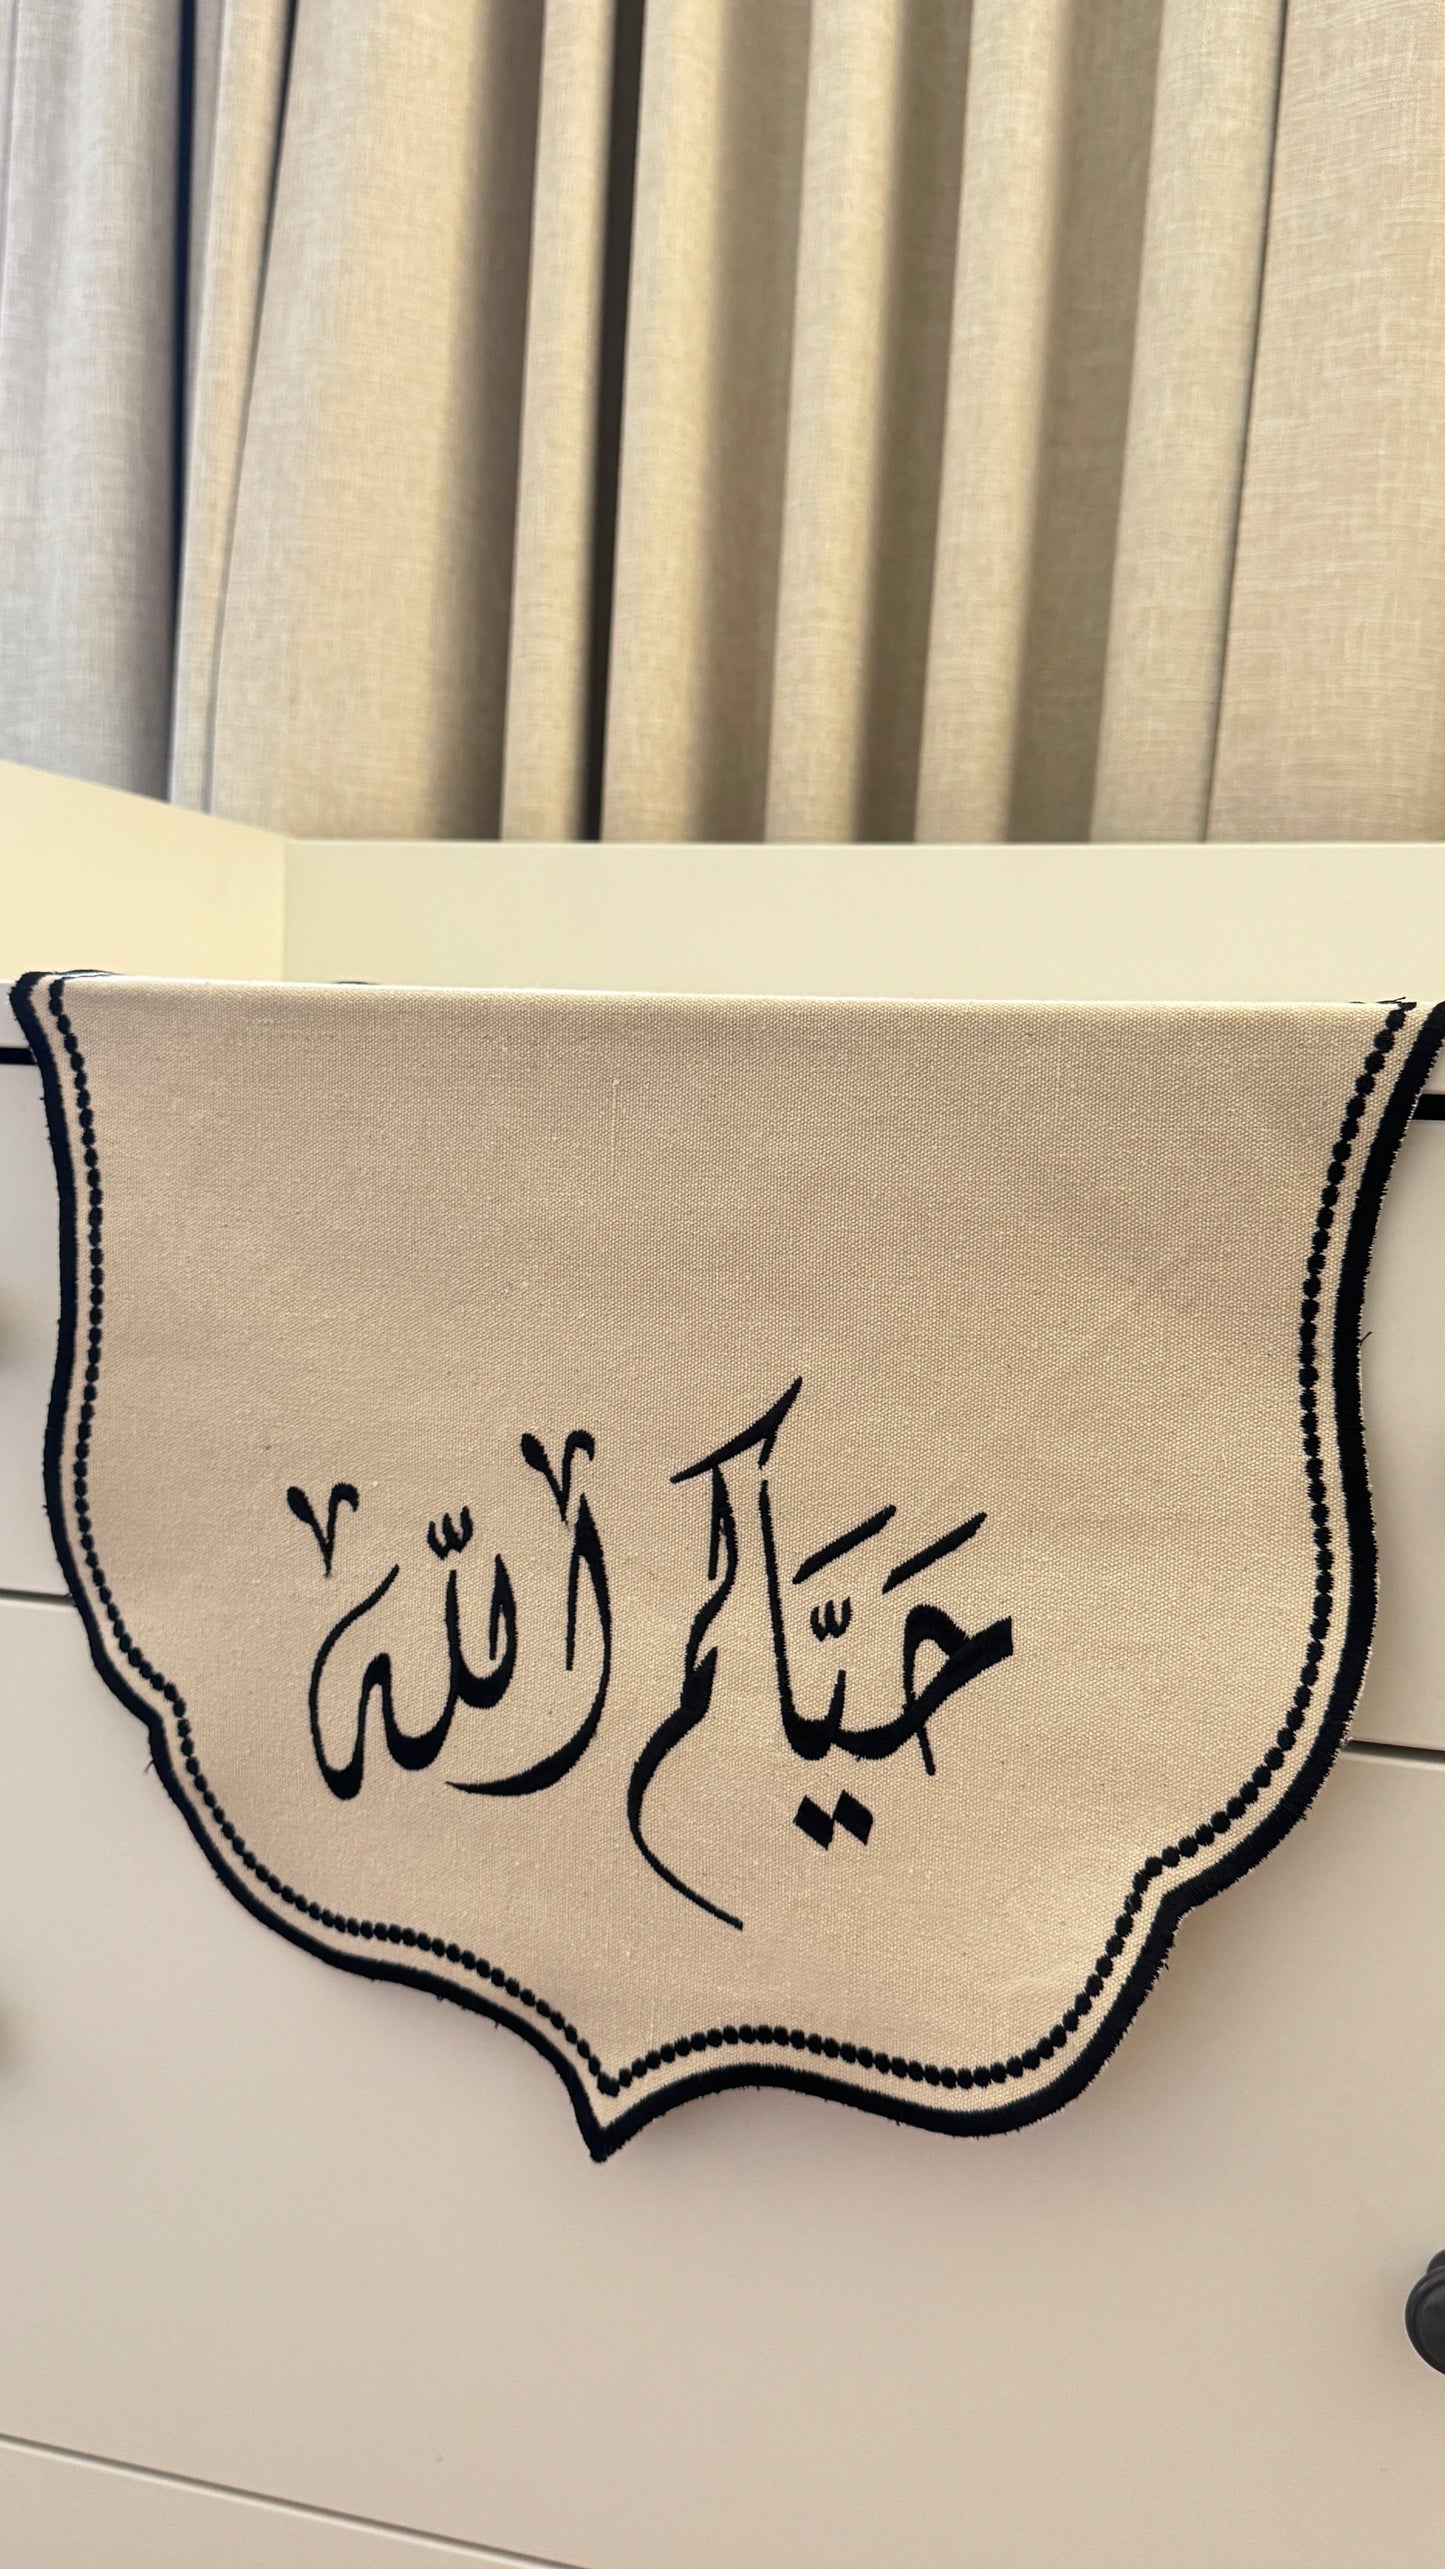 حَيَّاكم اللّٰه